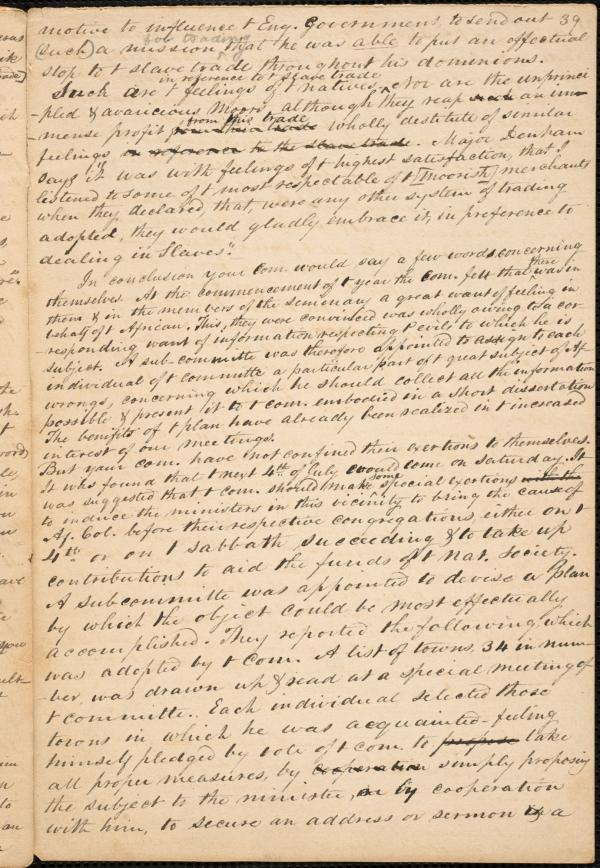 motive to influence t Eng. Government, to send out 39
(such) a mission, that he was able to put an effectual
stop to t slave trade throughout his dominions.
in reference to t slave trade
Such are t feelings of t natives. Nor are the unprinci
-pled & avaricious Moors, although they reap such an im
from this trade
mense profit wholly destitute of similar
feelings in reference to the slave trade. Major Denham
says "it was with feelings of t highest satisfaction, that I
listened to some of t most respectable of t [Moorish] merchants
when they declared, that, were any other system of trading
adopted, they would gladly embrace it, in preference to
dealing in Slaves".
In conclusion your Com. would say a few words concerning
themselves. At the commencement of t year the Com. felt that there was in
them & in the members of the Seminary a great want of feeling in
behalf of t African. This, they were convinced was wholly owing to a cor-
responding want of information respecting t evils to which he is
subject. A sub-committe was therefore appointed to assign to each
individual of t committe a particular part of t great subject of Af.
wrongs, concerning which he should collect all the information
possible & present it to t com. embodied in a short dissertation
The benefits of t plan have already been realized in t increased
interest of our meetings.
But your com. have not confined their exertions to themselves.
It was found that t next 4th of July would come on Saturday. It
was suggested that t com. should make some special exertions with the
to induce the ministers in this vicinity to bring the cause of
Af. Col. before their respective congregations either on t
4th or on t sabbath succeeding & to take up
contributions to aid the funds of t Nat. Society.
A subcommitte was appointed to devise a plan
by which the object could be most effectually
accomplished. They reported the following, which
was adopted by t Com. A list of towns, 34 in num-
ber, was drawn up & read at a special meeting of
t committe. Each individual selected those
towns in which he was acquainted - feeling
himself pledged by vote of t com. to propose take
all proper measures, by cooperation simply proposing
the subject to the minister, or by cooperation
with him, to secure an address or sermon is a